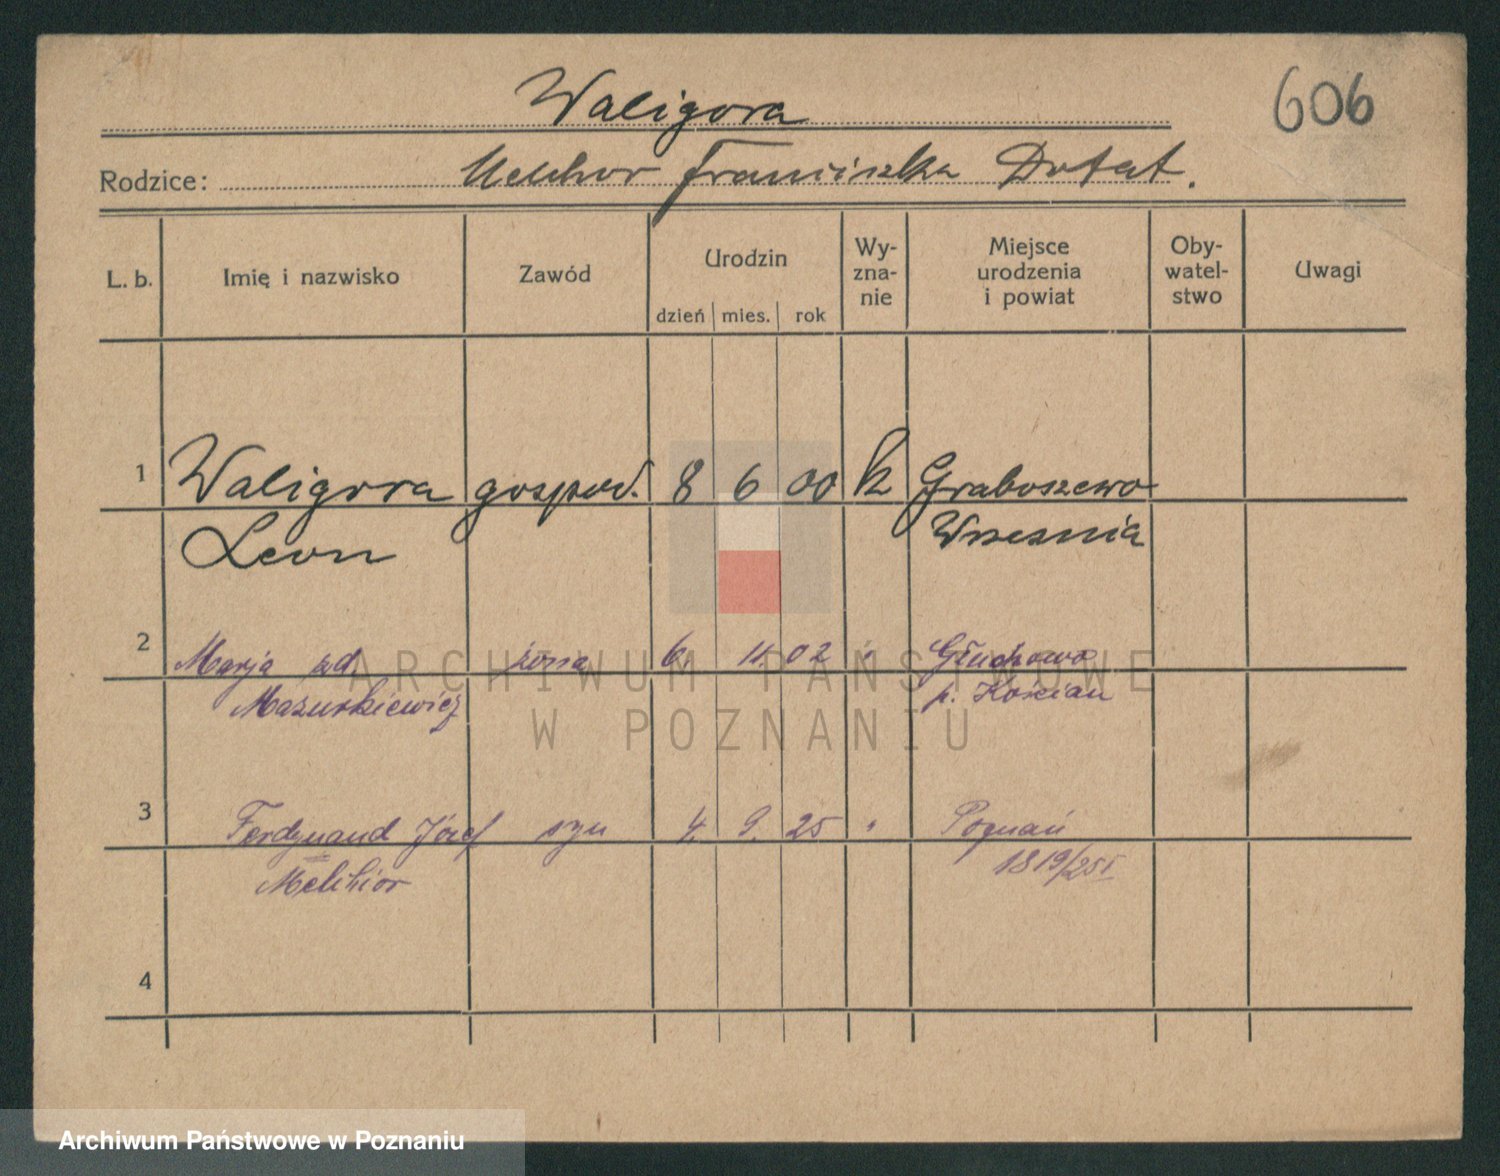 Waligora
606
Rodzice: Melchor Franciszka Dotat.
L. b. Imię i nazwisko Zawód Urodzin dzień mies. rok Wy-zna-nie Miejsce urodzenia i powiat Oby-watel-stwo Uwagi
1 Waligora gospod. 8 6 00 k Graboszewo
Leon Wrzesnia
2 Marja zd. żona 6 11. 02 " Głuchowo
Mazurkiewicz p. Kościan
3 Ferdynand Józef syn 4. 9. 25 " Poznań
Melchior 1819/25I
4
ARCHIWUM PAŃSTWOWE
W POZNANIU
Archiwum Państwowe w Poznaniu